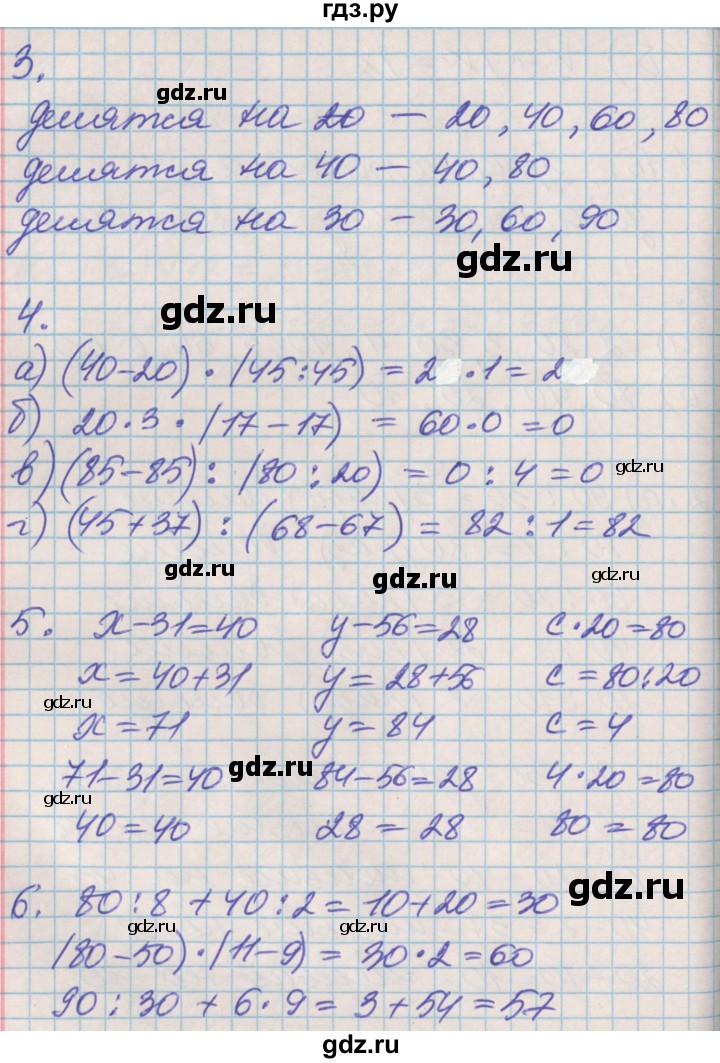 гдз.ру
3.
gdz.ru
делятся на 20 – 20, 40, 60, 80
делятся на 40 – 40, 80
делятся на 30 – 30, 60, 90
gdz.ru
4. gdz.ru
а) (40-20) · (45:45) = 2 · 1 = 2
б) 20·3 · (17-17) = 60·0 = 0
в) (85-85) : (80:20) = 0 : 4 = 0 gdz.ru
г) (45+37) : (68-67) = 82 : 1 = 82
gdz.ru gdz.ru gdz.ru
5. x-31=40 y-56=28 c·20=80
x=40+31 y=28+56 c=80:20
gdz.ru gdz.ru
x=71 y=84 c=4
71-31=40 gdz.ru 84-56=28 4·20=80
gdz.ru
40=40 28=28 80=80
6. 80:8+40:2=10+20=30 gdz.ru
gdz.ru gdz.ru
(80-50)·(11-9)=30·2=60
90:30+6·9=3+54=57
gdz.ru